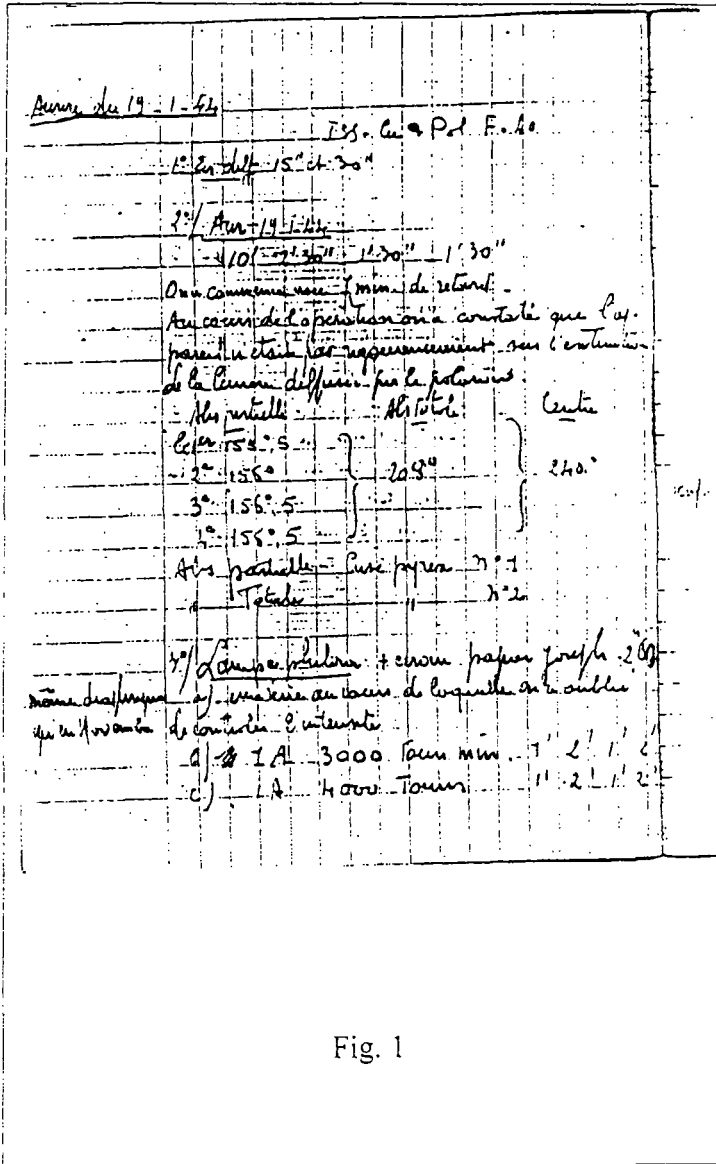 Aurore du 19-1-44
Iss. Cu Pol F. 40
1° En diff 15" et 30"
2°/ Aur 19-1-44
10' 2'30" 1'30" 1'30"
On a commencé avec min. de retard.
Au cours de l'opération on a constaté que l'ap-
pareil n'était pas rigoureusement sur l'extinction
de la lumière diffusée par le polariseur.
Abs partielle Abs totale Centre
2° 156° 208° 240°
3° 156°,5
4° 156°,5
Abs partielle Cuve pyrex N°1
" Totale " N°2
3°/ Lampe + écrou papier Joseph
même diaphragme a) au cours de laquelle on a oublié
qu'en Novembre de contrôler l'intensité
b) 1A 3000 Tours min. 1' 2' 1' 2'
c) 1A 4000 Tours 1' 2' 1' 2'
Fig. 1